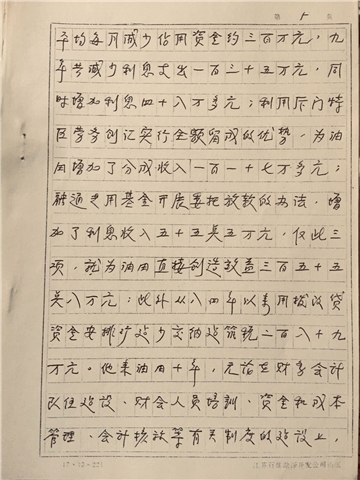 第 5 页
平均每月减少占用资金约三百万元，九
年共减少利息支出一百三十五万元，同
时增加利息四十八万多元；利用厦门特
区劳务创汇实行全额留成的优势，为油
田增加了分成收入一百一十七万多元；
融通专用基金开展委托放款的办法，增
加了利息收入五十五点五万元，仅此三
项，就为油田直接创造效益三百五十五
点八万元；此外从八四年以专用拨改贷
资金安排矿建少交纳建筑税二百八十九
万元。他来油田十年，无论在财务会计
队伍建设、财会人员培训、资金和成本
管理、会计核放等有关制度的建设上，